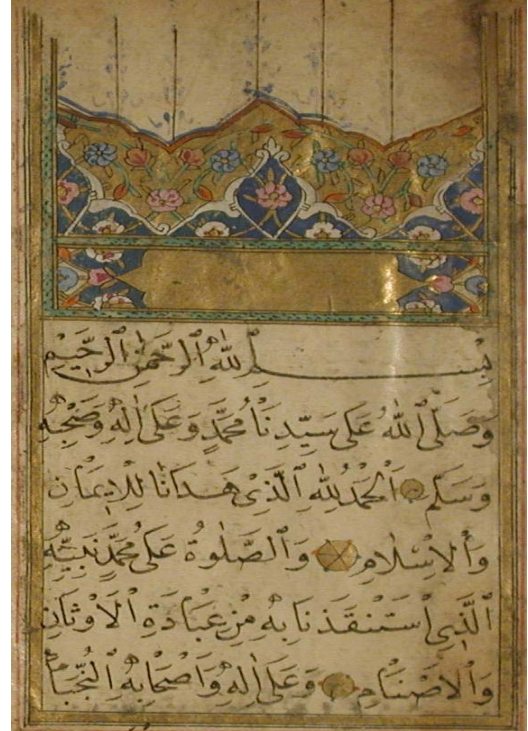 بِسْمِ ٱللّٰهِ ٱلرَّحْمٰنِ ٱلرَّحِيْمِ
وَصَلَّى ٱللّٰهُ عَلٰى سَيِّدِنَا مُحَمَّدٍ وَعَلٰى اٰلِهٖ وَصَحْبِهٖ
وَسَلَّم اَلْحَمْدُ لِلّٰهِ ٱلَّذِيْ هَدَانَا لِلْاِيمَانِ
وَٱلْاِسْلَامِ وَٱلصَّلٰوةُ عَلٰى مُحَمَّدٍ نَبِيِّهِ
ٱلَّذِي ٱسْتَنْقَذَنَا بِهٖ مِنْ عِبَادَةِ ٱلْاَوْثَانِ
وَٱلْاَصْنَامِ وَعَلٰى اٰلِهٖ وَاَصْحَابِهِ ٱلنُّجَبَاءِ